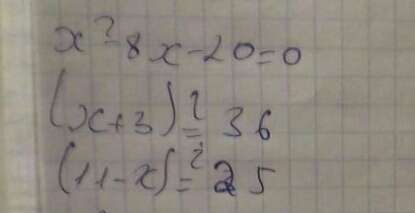 x²-8x-20=0
(x+3)²=36
(11-x)²=25